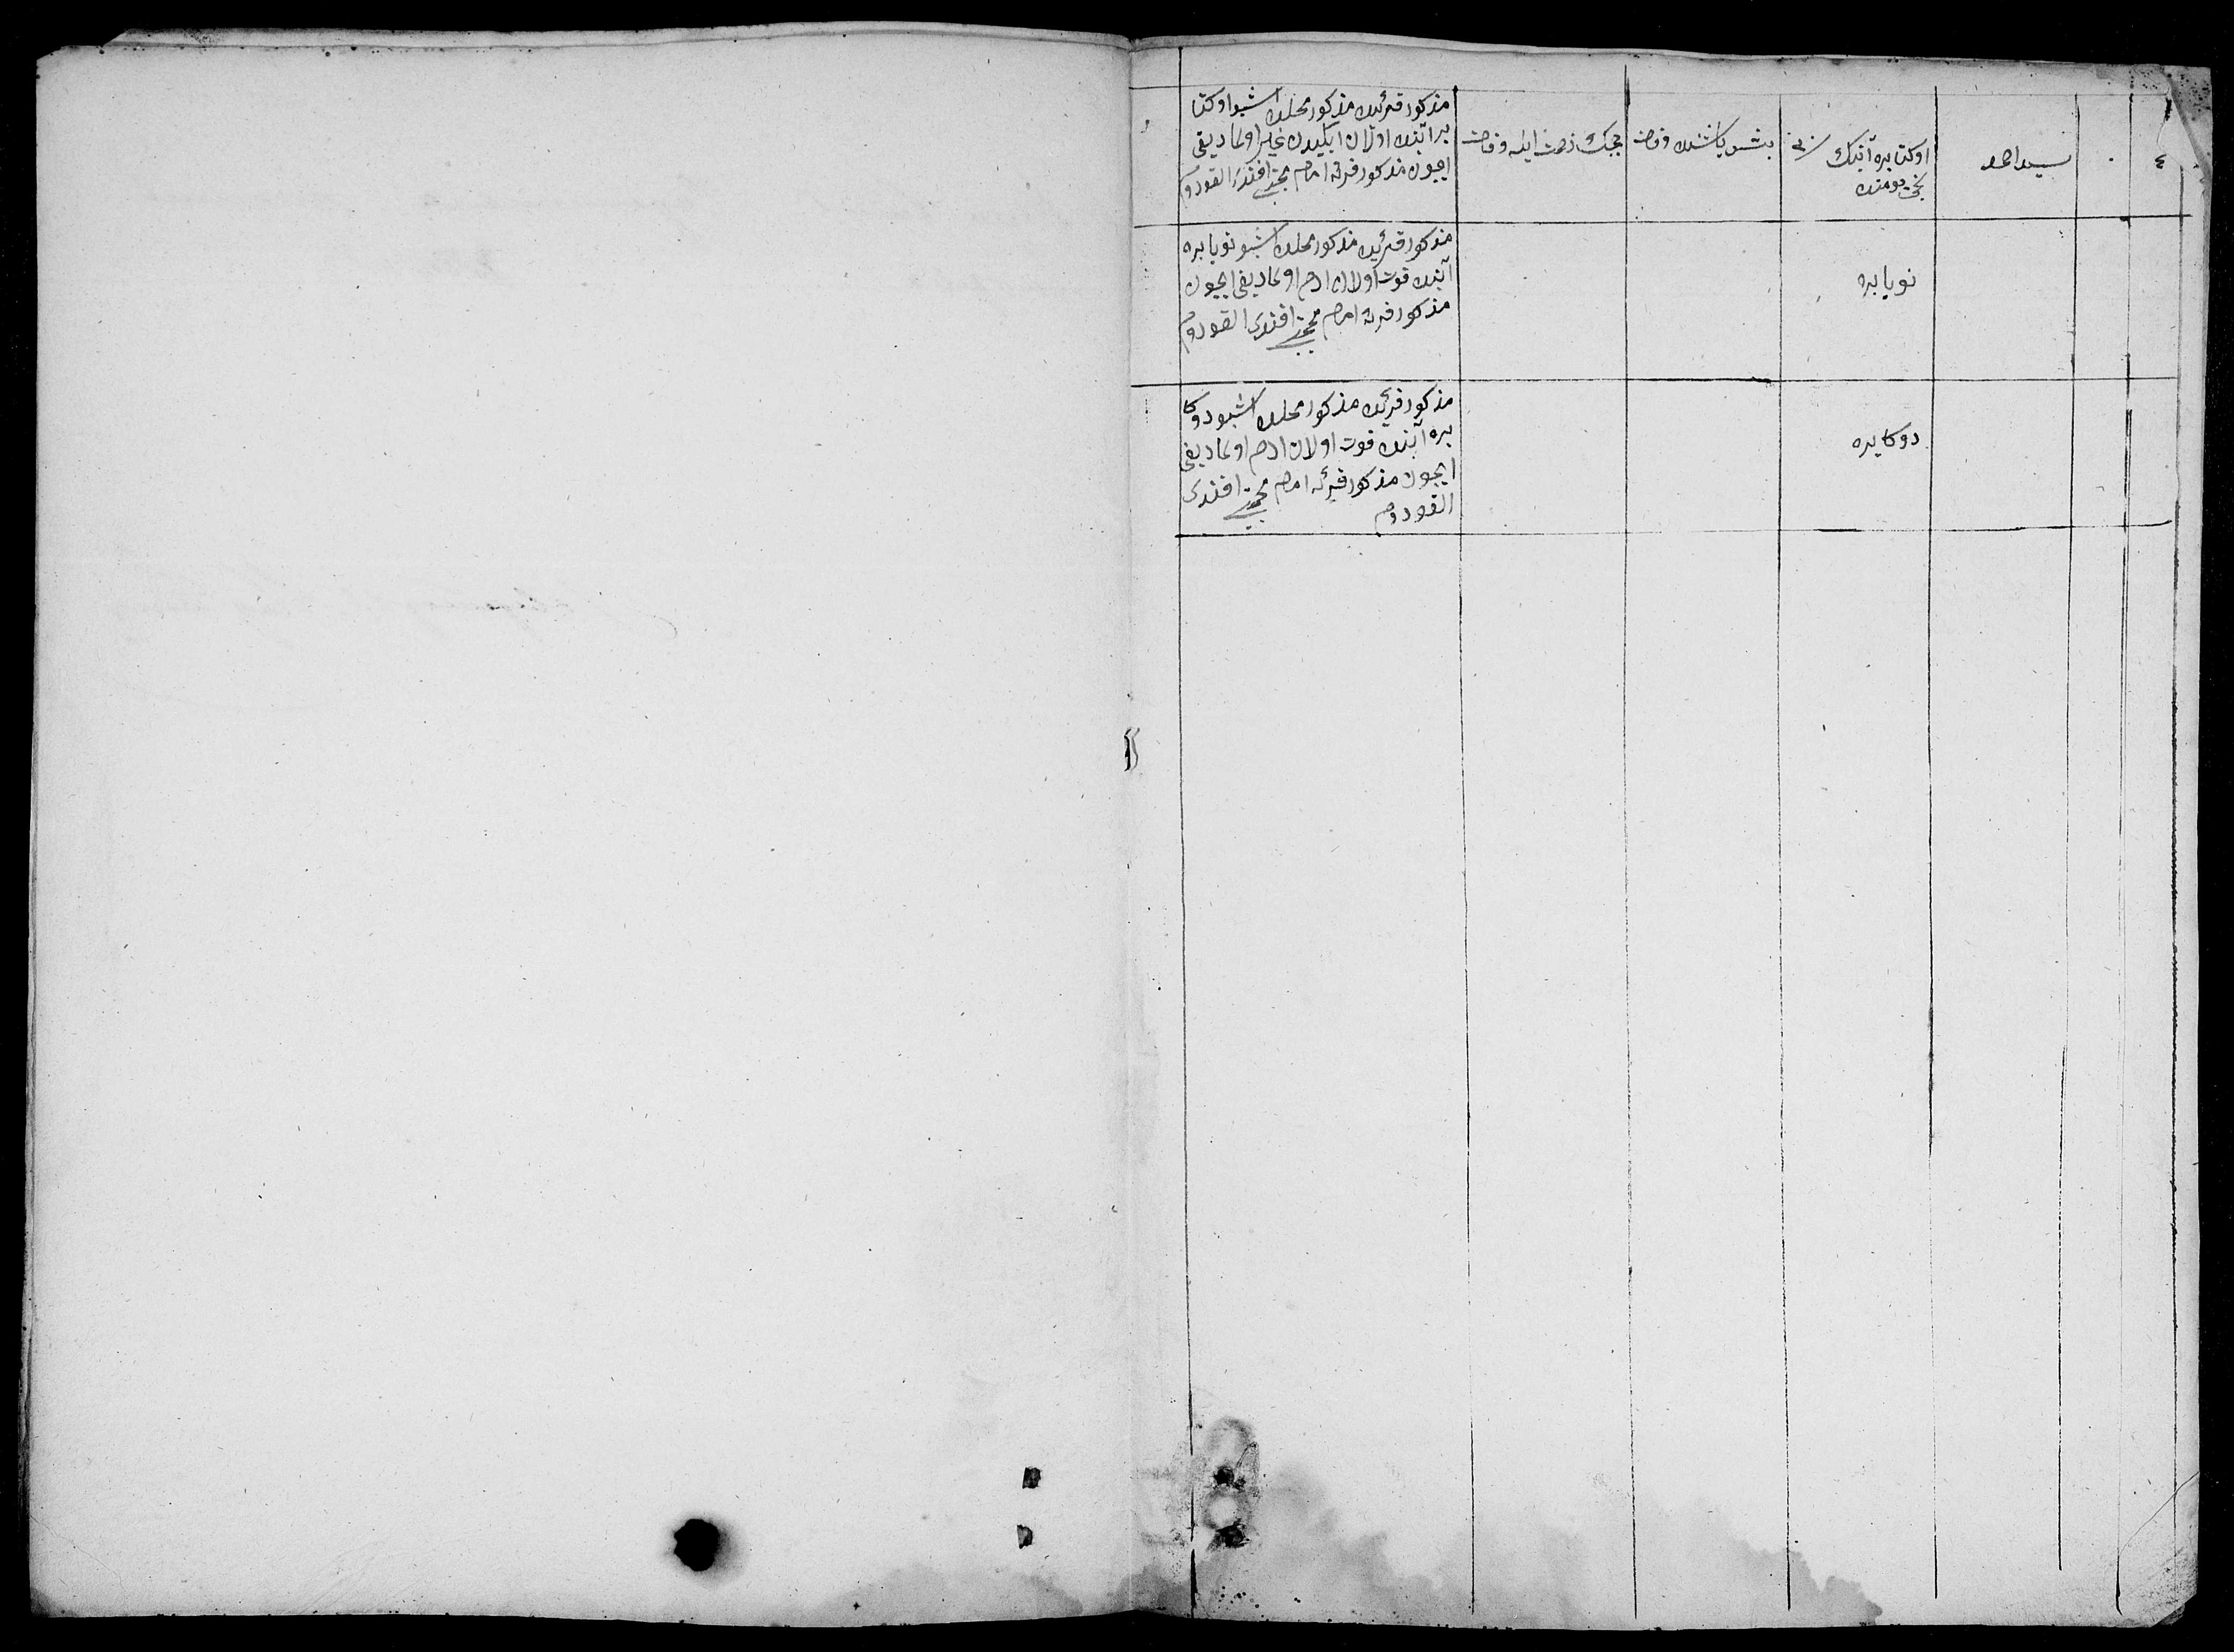 ٤
٠
سید احمد
اوکتابره آینك
نجی یومنده
بش یاشنده وفات
چچك زحمت ایله وفات
مذکور قریه‌ده مذکور محلده اشبو اوکتا
بر آینده اولان ایکیدن غیر اولمادیغی
ایچون مذکور قریه امام افندی القودوم
نویابره
مذکور قریه‌ده مذکور محلده اشبو نویابره
آینده فوت اولان ادم اولمادیغی ایچون
مذکور قریه امام افندی القودوم
دوکابره
مذکور قریه‌ده مذکور محلده اشبو دوکا
بره آینده فوت اولان ادم اولمادیغی
ایچون مذکور قریه امام افندی
القودوم